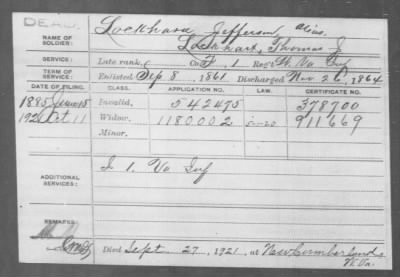 DEAD.
NAME OF SOLDIER: Lockhard, Jefferson, alias.
Lockhart, Thomas J.
SERVICE: Late rank, Co. F, 1 Reg't W. Va Inf
TERM OF SERVICE: Enlisted Sep 8, 1861 Discharged Nov 26, 1864
DATE OF FILING. CLASS. APPLICATION NO. LAW. CERTIFICATE NO.
1885 June 15 Invalid, 542475 378700
1921 Oct 11 Widow, 1180002 911669
Minor,
ADDITIONAL SERVICES: I 1. Va Inf
REMARKS:
Died Sept. 27, 1921, at New Cumberland,
W. Va.